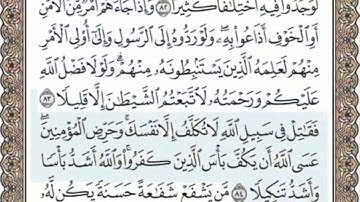 لَوَجَدُوا۟ فِيهِ ٱخْتِلَٰفًا كَثِيرًا ٨٢ وَإِذَا جَآءَهُمْ أَمْرٌ مِّنَ ٱلْأَمْنِ
أَوِ ٱلْخَوْفِ أَذَاعُوا۟ بِهِۦ ۖ وَلَوْ رَدُّوهُ إِلَى ٱلرَّسُولِ وَإِلَىٰٓ أُو۟لِى ٱلْأَمْرِ
مِنْهُمْ لَعَلِمَهُ ٱلَّذِينَ يَسْتَنۢبِطُونَهُۥ مِنْهُمْ ۗ وَلَوْلَا فَضْلُ ٱللَّهِ
عَلَيْكُمْ وَرَحْمَتُهُۥ لَٱتَّبَعْتُمُ ٱلشَّيْطَٰنَ إِلَّا قَلِيلًا ٨٣
فَقَٰتِلْ فِى سَبِيلِ ٱللَّهِ لَا تُكَلَّفُ إِلَّا نَفْسَكَ ۚ وَحَرِّضِ ٱلْمُؤْمِنِينَ ۖ
عَسَى ٱللَّهُ أَن يَكُفَّ بَأْسَ ٱلَّذِينَ كَفَرُوا۟ ۚ وَٱللَّهُ أَشَدُّ بَأْسًا
وَأَشَدُّ تَنكِيلًا ٨٤ مَّن يَشْفَعْ شَفَٰعَةً حَسَنَةً يَكُن لَّهُۥ